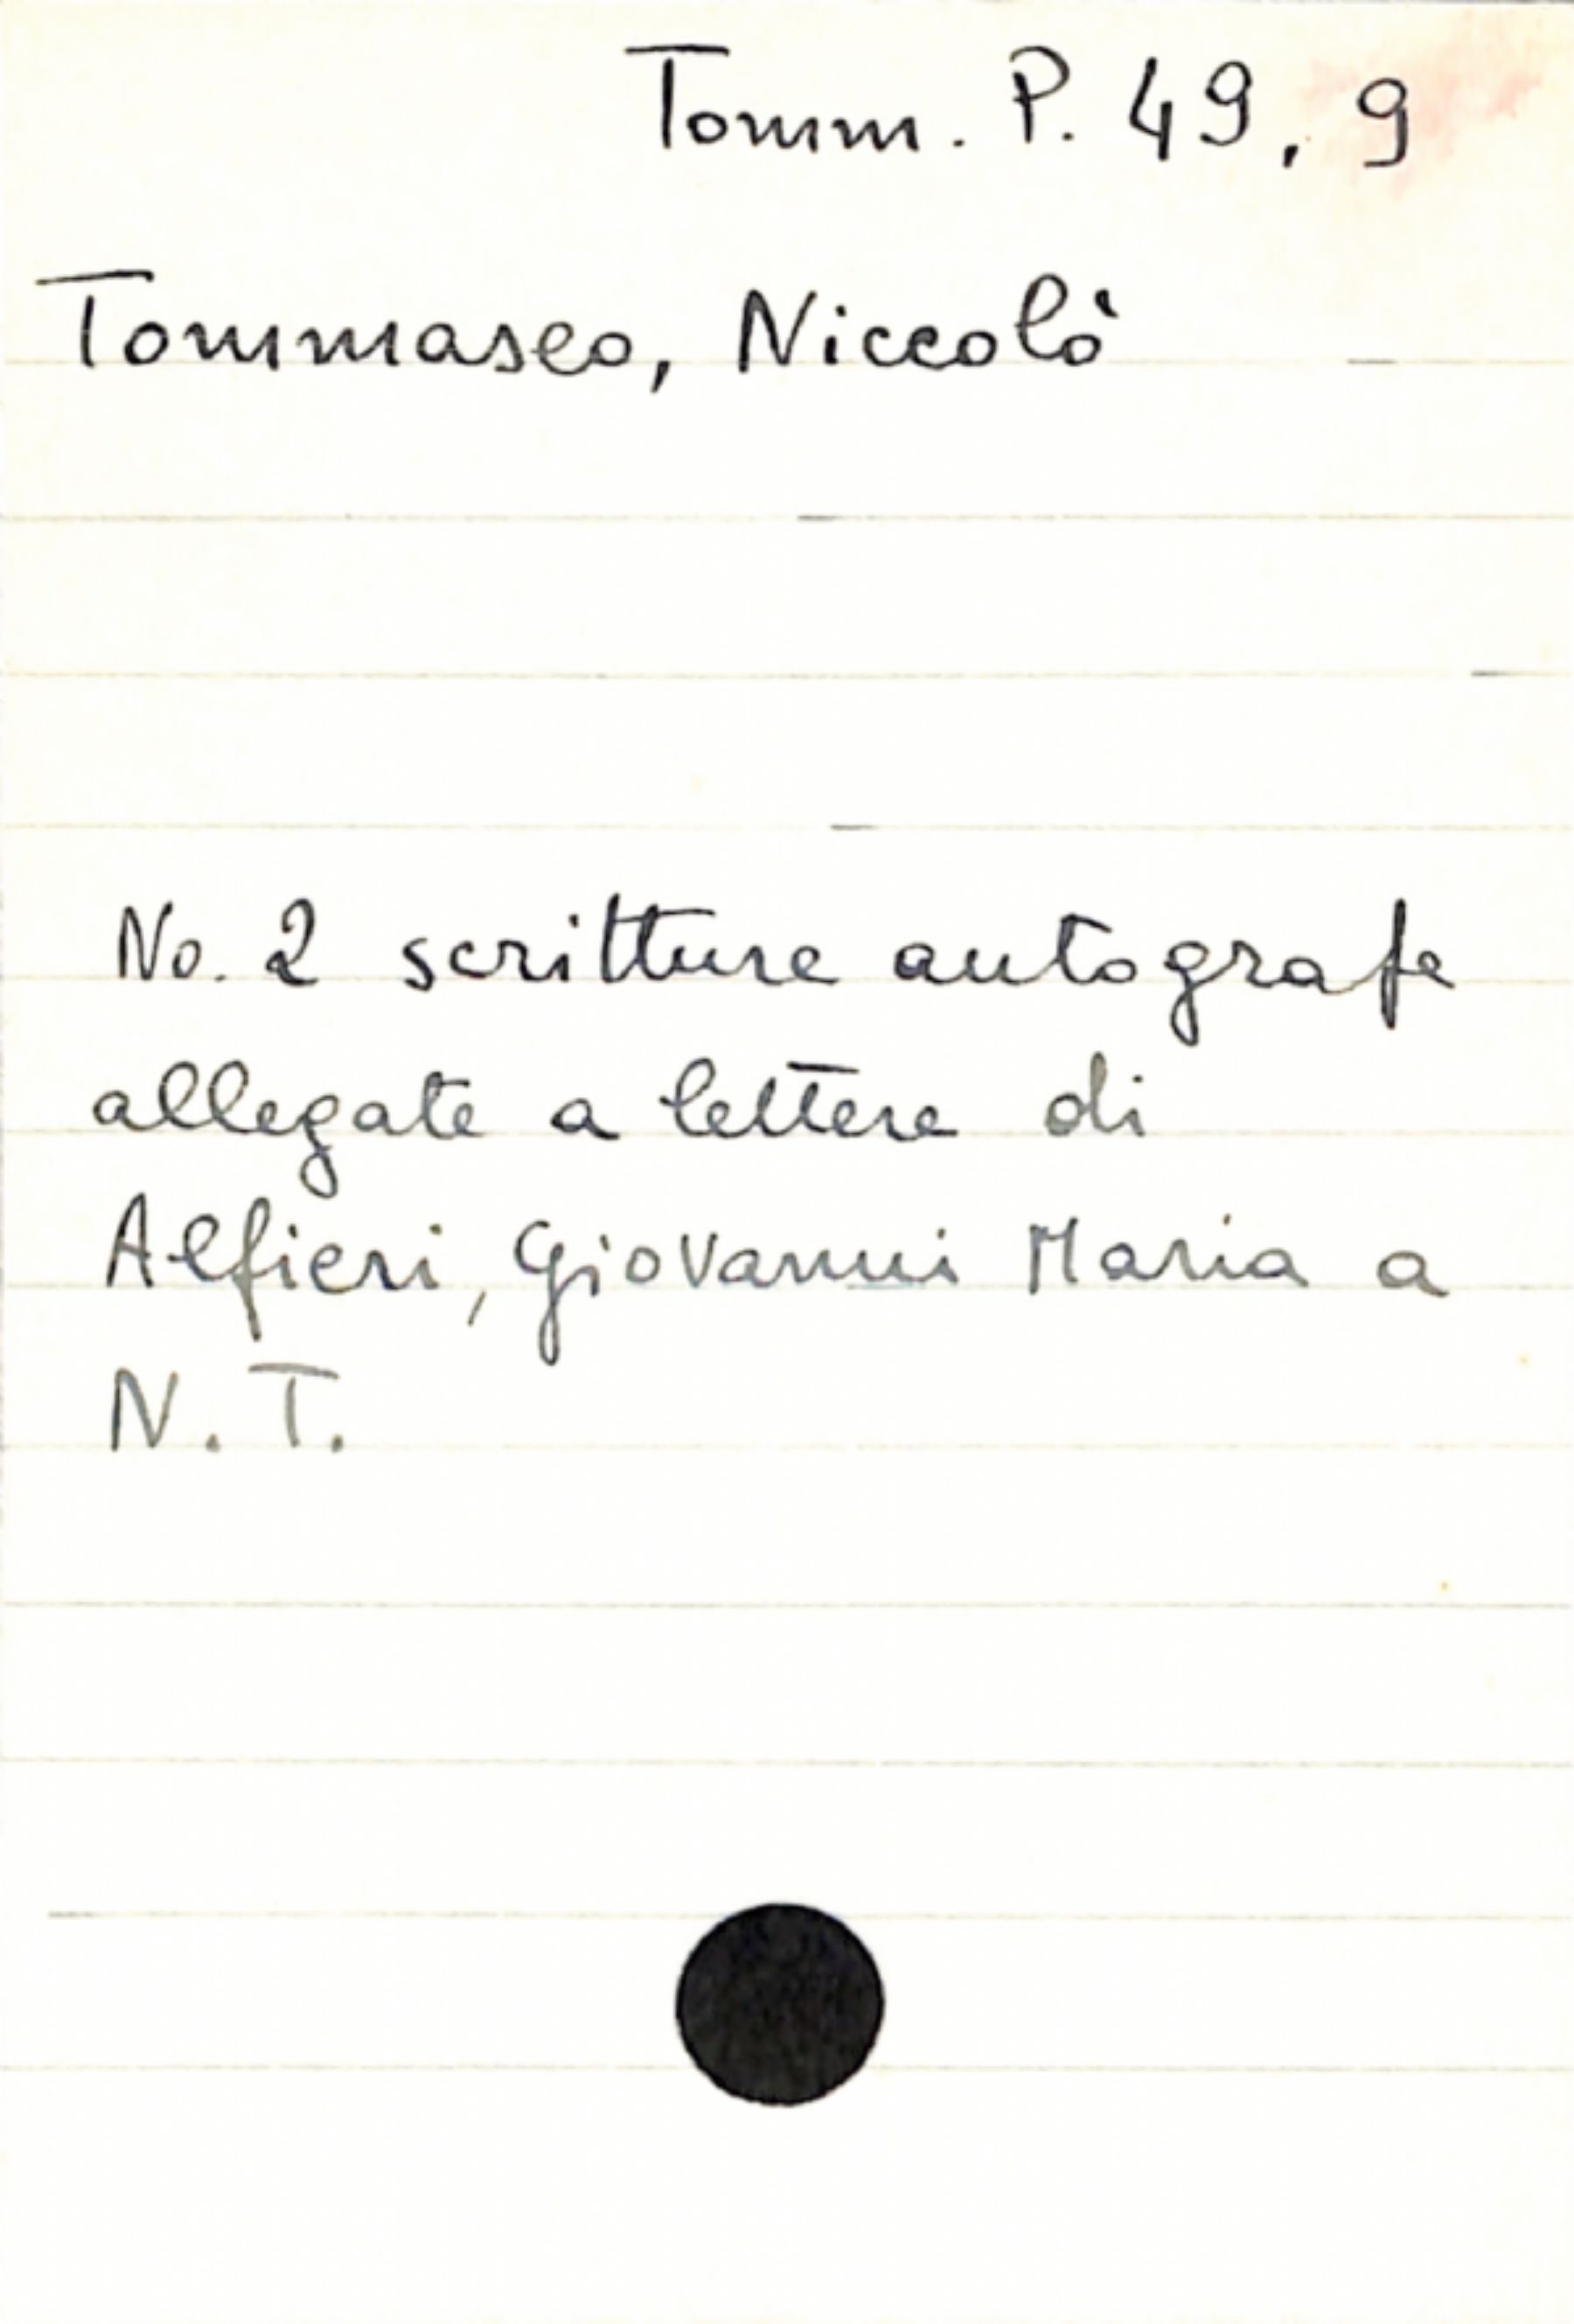 Tomm. P. 49, 9
Tommaseo, Niccolò
No. 2 scritture autografe
allegate a lettere di
Alfieri, Giovanni Maria a
N. T.